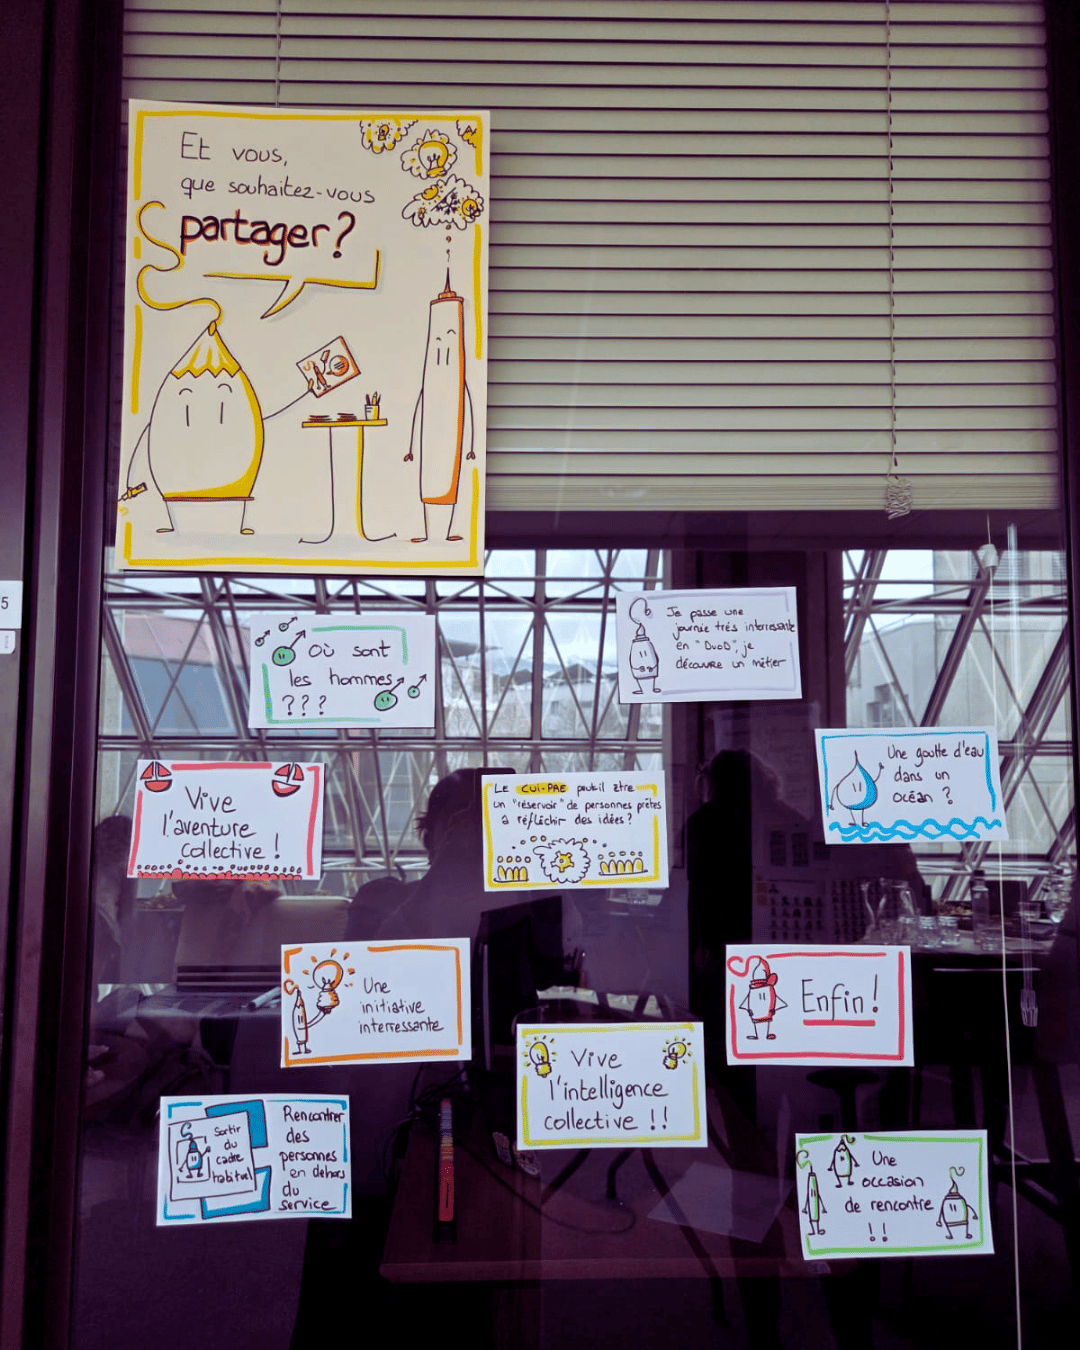 Et vous,
que souhaitez-vous
partager?
Où sont
les hommes
???
Je passe une
journée très interressante
en "DvoD", je
découvre un métier
Vive
l'aventure
collective !
Le CUI-PAE peut-il être
un "réservoir" de personnes prêtes
à réfléchir des idées?
Une goutte d'eau
dans un
océan ?
Une
initiative
interressante
Enfin!
Vive
l'intelligence
collective !!
Sortir
du
cadre
habituel
Rencontrer
des
personnes
en dehors
du
service
Une
occasion
de rencontre
!!
5